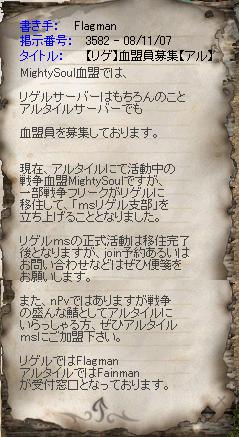 書き手: Flagman
掲示番号: 3582 - 08/11/07
タイトル: 【リゲ】血盟員募集【アル】
MightySoul血盟では、
リゲルサーバーはもちろんのこと
アルタイルサーバーでも
血盟員を募集しております。
現在、アルタイルにて活動中の
戦争血盟MightySoulですが、
一部戦争フリークがリゲルに
移住して、「msリゲル支部」を
立ち上げることとなりました。
リゲルmsの正式活動は移住完了
後となりますが、join予約あるいは
お問い合わせなどはぜひ便箋を
お願します。
また、nPvではありますが戦争
の盛んな鯖としてアルタイルに
いらっしゃる方、ぜひアルタイル
msにご加盟下さい。
リゲルではFlagman
アルタイルではFainman
が受付窓口となっております。